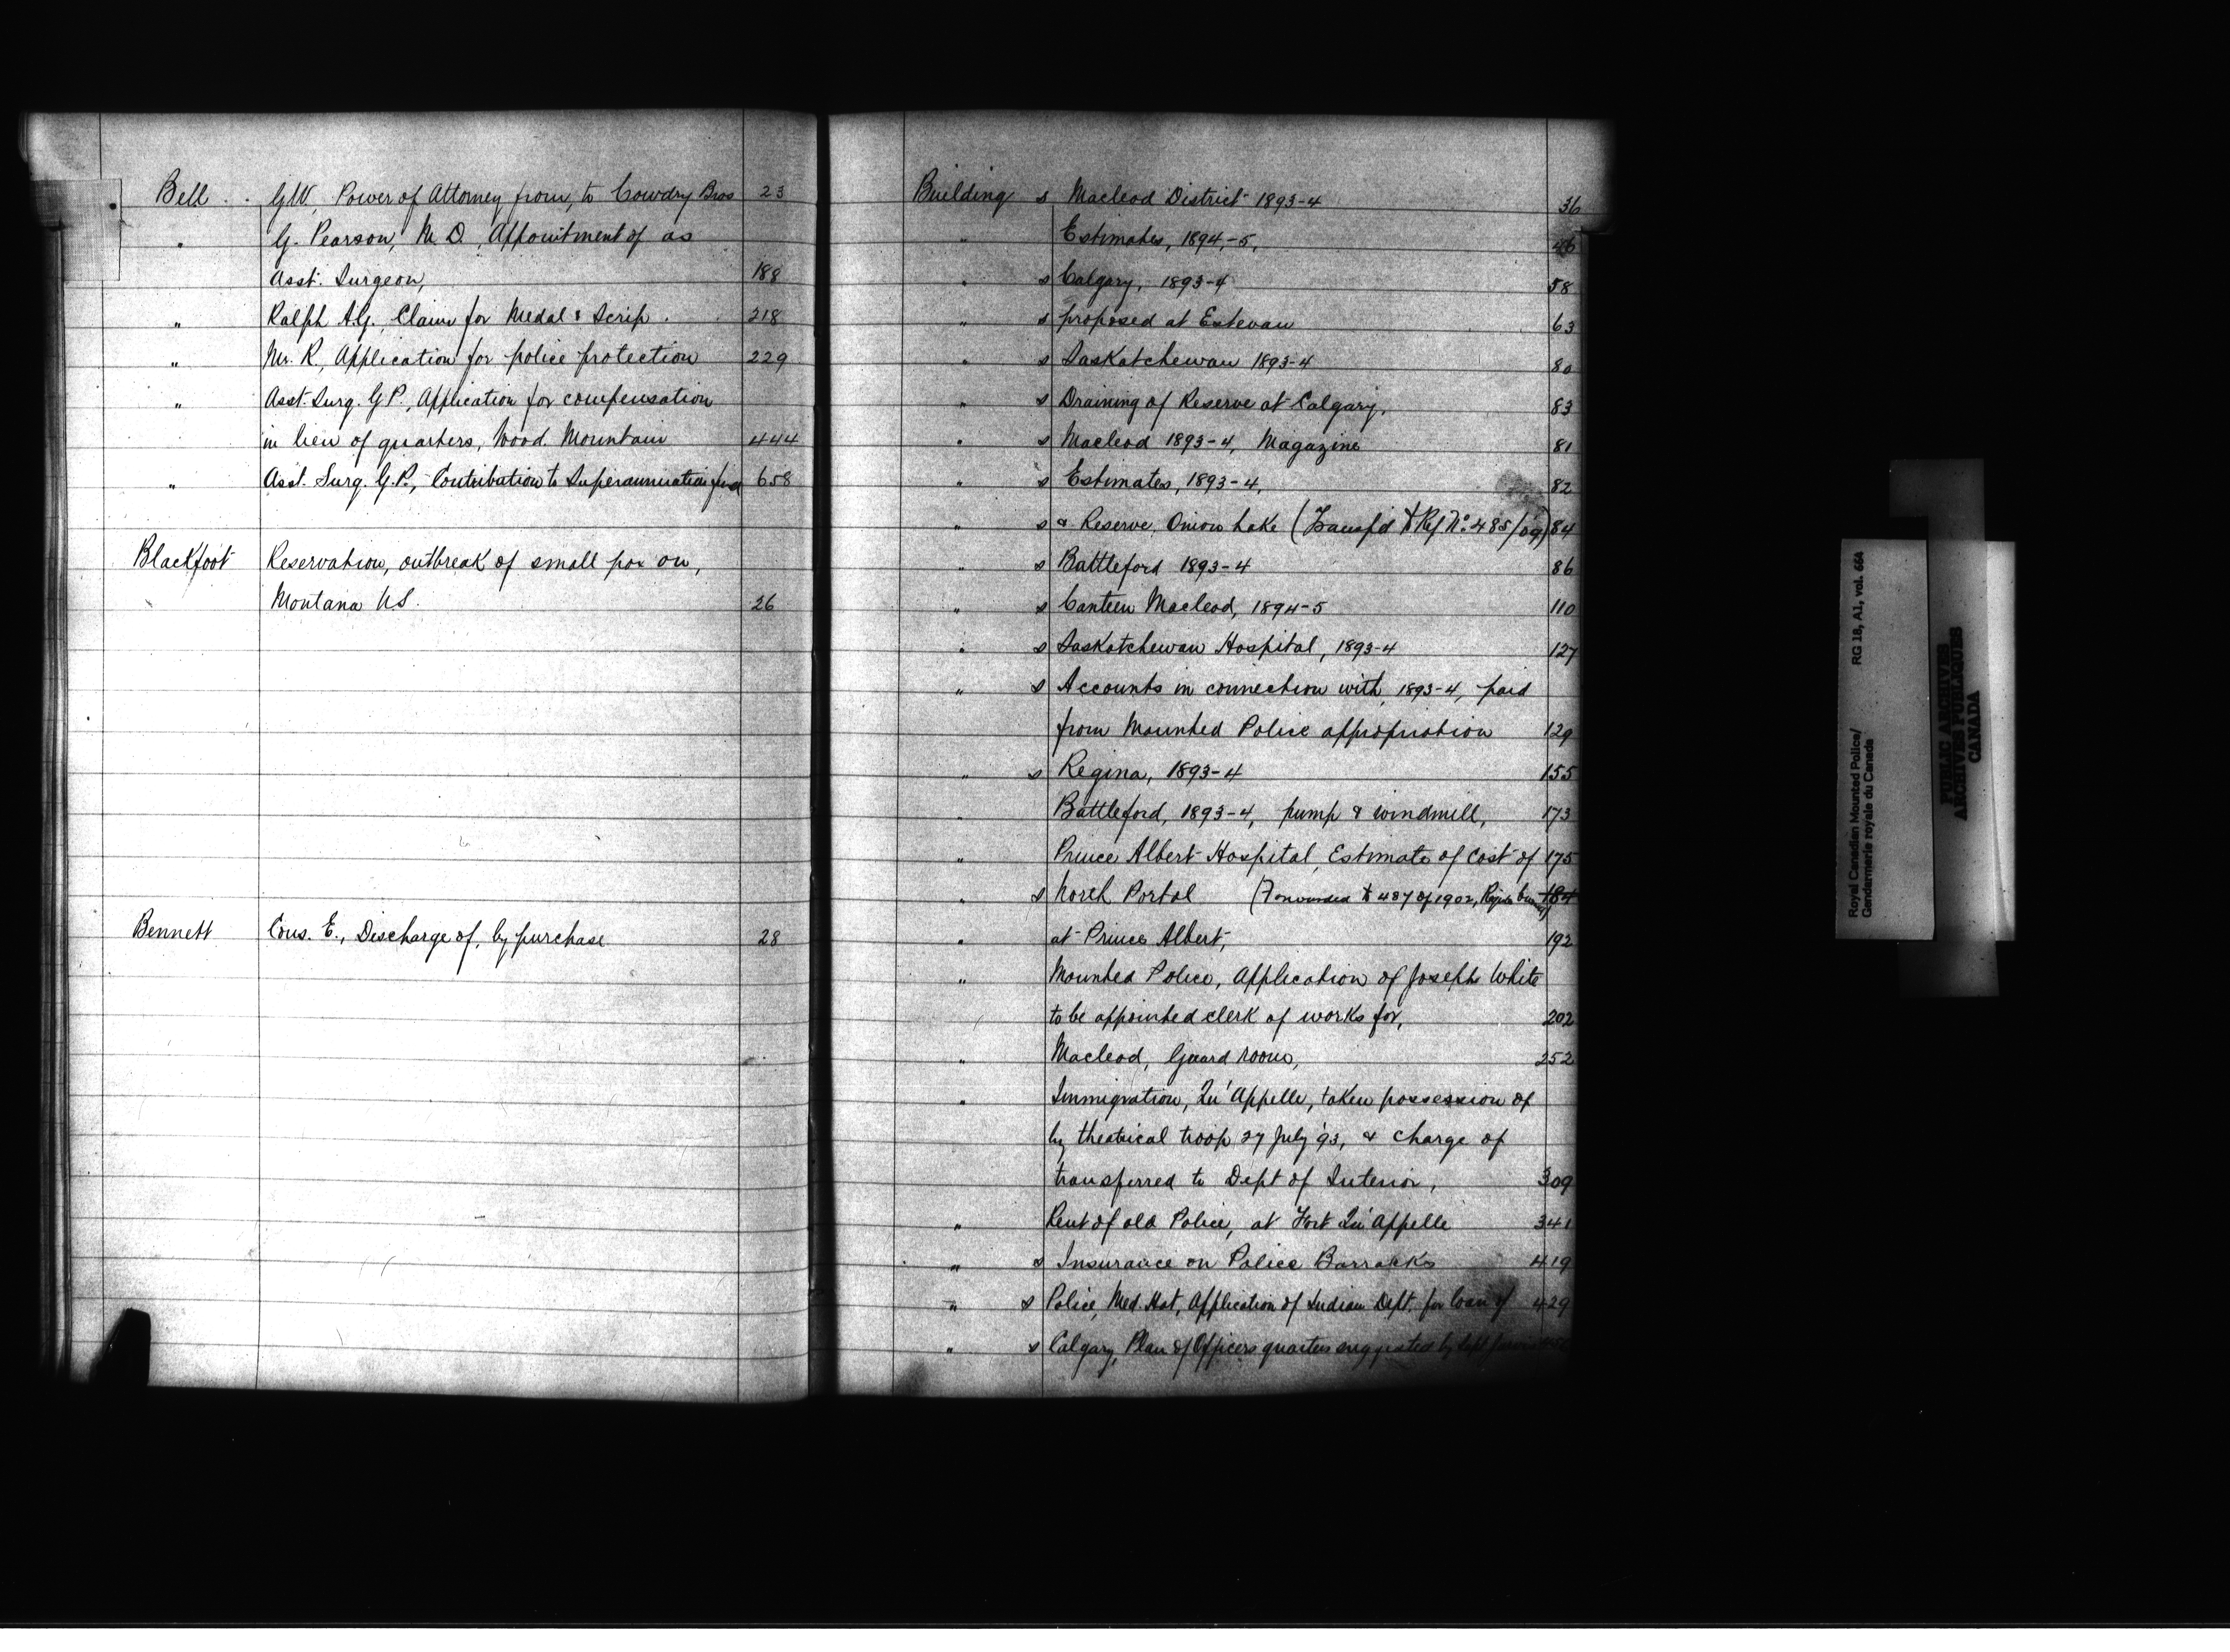 Bell . . G.W. Power of Attorney from, to Cowdry Bros 23
" G. Pearson, M.D., Appointment of as
Asst. Surgeon, 188
" Ralph A.G., Claim for Medal & Scrip . 218
" Mr. R., Application for police protection 229
" Asst. Surg. G.P., Application for compensation
in lieu of quarters, Wood Mountain 444
" Asst. Surg. G.P., Contribution to Superannuation fund 658
Blackfoot Reservation, outbreak of small pox on,
Montana U.S. 26
Bennett Cons. E., Discharge of, by purchase 28
Building s Macleod District 1893-4 36
" Estimates, 1894-5, 46
" s Calgary, 1893-4 58
" s proposed at Estevan 63
" s Saskatchewan 1893-4 80
" s Draining of Reserve at Calgary, 83
" s Macleod 1893-4, Magazine 81
" s Estimates, 1893-4, 82
" s & Reserve, Onion Lake (Transf'd to Ref. No. 485/09) 84
" s Battleford 1893-4 86
" s Canteen Macleod, 1894-5 110
" s Saskatchewan Hospital, 1893-4 127
" s Accounts in connection with, 1893-4, paid
from Mounted Police appropriation 129
" s Regina, 1893-4 155
" Battleford, 1893-4, pump & windmill, 173
" Prince Albert Hospital, Estimate of Cost of 175
" s North Portal (Forwarded to 487 of 1902, 184
" at Prince Albert, 192
" Mounted Police, Application of Joseph White
to be appointed clerk of works for, 202
" Macleod, Guard room, 252
" Immigration, Qu'Appelle, taken possession of
by theatrical troop 27 July '93, & charge of
transferred to Dept of Interior, 309
" Rent of old Police, at Fort Qu'Appelle 341
" s Insurance on Police Barracks 419
" s Police, Med. Hat, Application of Indian Dept. for loan of 429
" s Calgary, Plan of Officers quarters suggested by
Royal Canadian Mounted Police/
Gendarmerie royale du Canada
RG 18, A1, vol. 664
PUBLIC ARCHIVES
ARCHIVES PUBLIQUES
CANADA